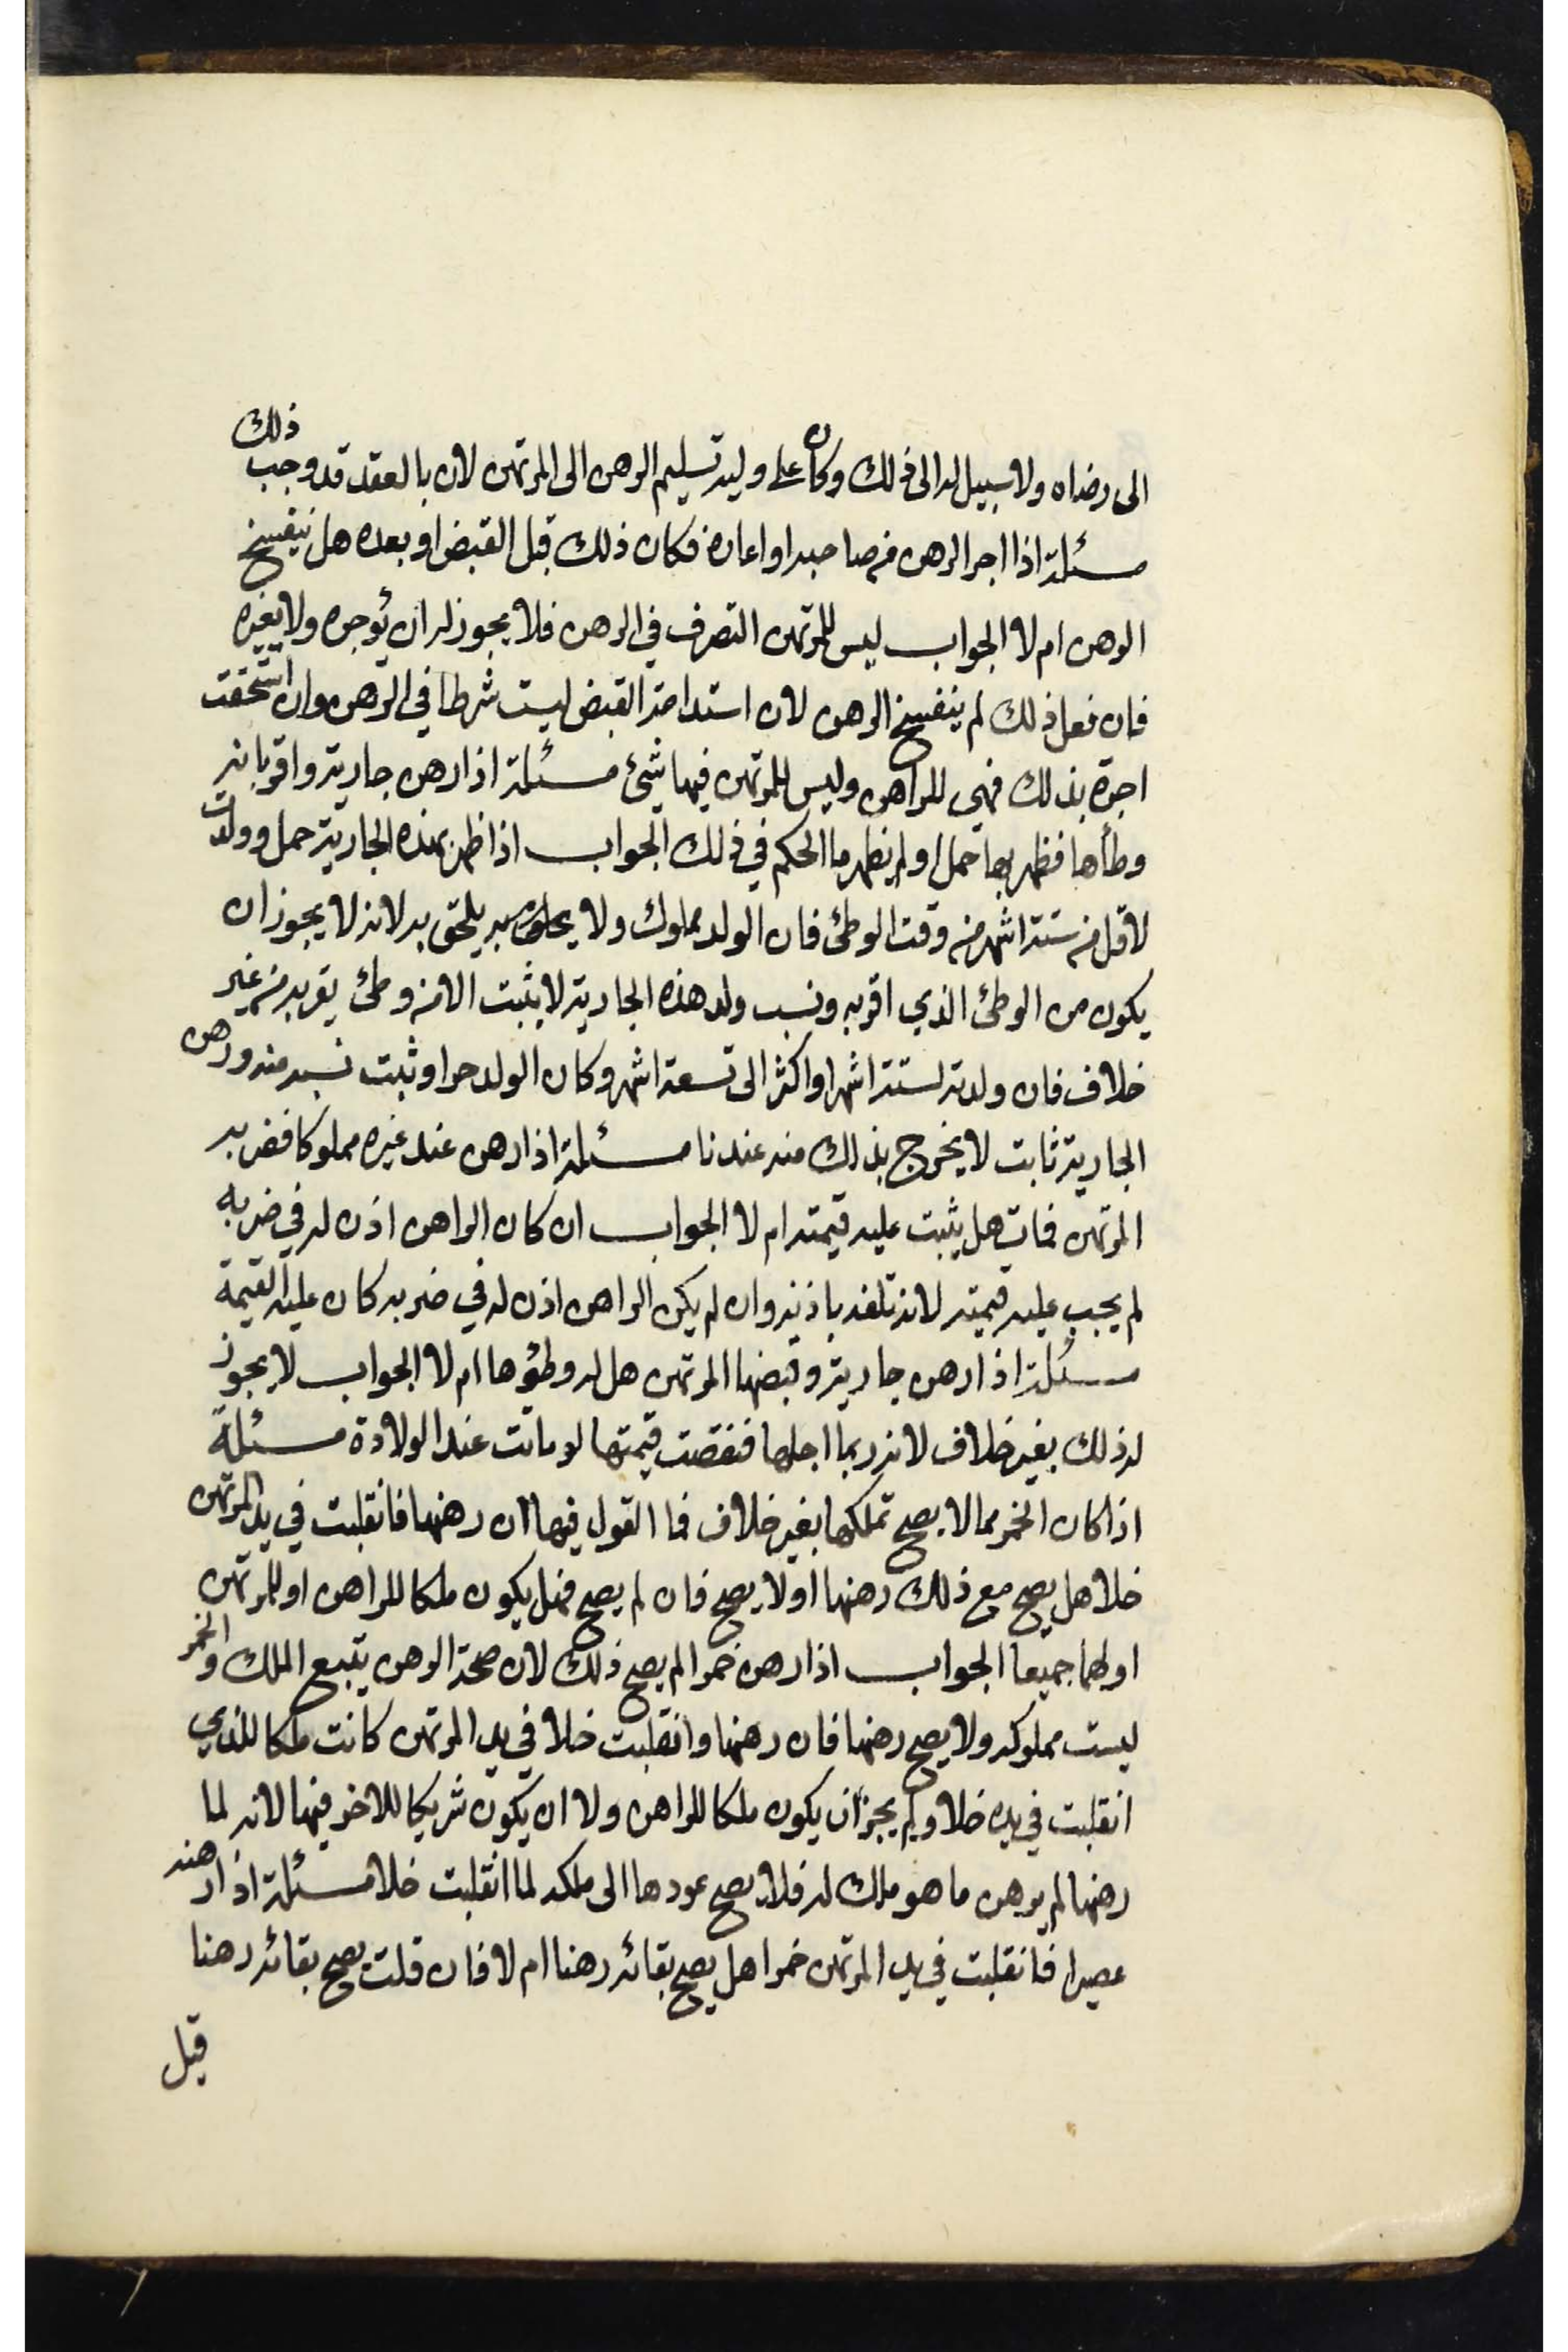 الى رضاه ولا سبيل له الى ذلك وكان على وليه تسليم الرهن الى المرتهن لان بالعقد قد وجب ذلك
مسئلة اذا اجر الرهن من صاحبه او اعاره فكان ذلك قبل القبض او بعده هل ينفسخ
الرهن ام لا الجواب ليس للمرتهن التصرف في الرهن فلا يجوز له ان يؤجره ولا يغيره
فان فعل ذلك لم ينفسخ الرهن لان استدامة القبض ليست شرطا في الرهن وان استحقت
اجرة بذلك فهي للراهن وليس للمرتهن فيها شئ مسئلة اذا رهن جارية واقر بانه
وطأها فظهر بها حمل او لم يظهر ما الحكم في ذلك الجواب اذا ظهر بهذه الجارية حمل وولدت
لاقل من ستة اشهر من وقت الوطئ فان الولد مملوك ولا يلحق به لانه لا يجوز ان
يكون من الوطئ الذي اقر به ونسب ولد هذه الجارية لا يثبت الا من وطئ يقر به من غير
خلاف فان ولدته لستة اشهر او اكثر الى تسعة اشهر وكان الولد حرا وثبت نسبه منه ورهن
الجارية ثابت لا يخرج بذلك منه عندنا مسئلة اذا رهن عند غيره مملوكا فضربه
المرتهن فمات هل يثبت عليه قيمته ام لا الجواب ان كان الراهن اذن له في ضربه
لم يجب عليه قيمته لانه تلفه باذنه وان لم يكن الراهن اذن له في ضربه كان عليه القيمة
مسئلة اذا رهن جارية وقبضها المرتهن هل له وطؤها ام لا الجواب لا يجوز
له ذلك بغير خلاف لانه ربما احبلها فنقصت قيمتها او ماتت عند الولادة مسئلة
اذا كان الخمر مما لا يصح تملكها بغير خلاف فما القول فيها ان رهنها فانقلبت في يد المرتهن
خلا هل يصح مع ذلك رهنها او لا يصح فان لم يصح فهل يكون ملكا للراهن او للمرتهن
او لهما جميعا الجواب اذا رهن خمرا لم يصح ذلك لان صحة الرهن يتبع الملك والخمر
ليست مملوكه ولا يصح رهنها فان رهنها وانقلبت خلا في يد المرتهن كانت ملكا للذي
انقلبت في يده خلا ولم يجز ان يكون ملكا للراهن ولا ان يكون شريكا للاخر فيها لانه لما
رهنها لم يرهن ما هو ملك له فلا يصح عودها الى ملكه لما انقلبت خلا مسئلة اذا رهنه
عصيرا فانقلبت في يد المرتهن خمرا هل يصح بقائه رهنا ام لا فان قلت يصح بقائه رهنا
قيل